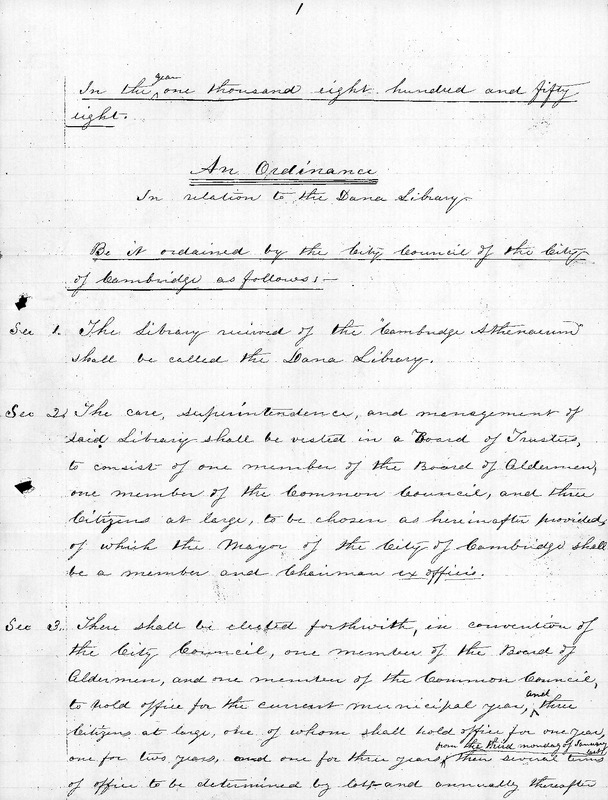 1
In the year one thousand eight hundred and fifty
eight.
An Ordinance
In relation to the Dana Library
Be it ordained by the City Council of the City
of Cambridge as follows:-
Sec 1. The Library received of the "Cambridge Athenaeum"
shall be called the Dana Library.
Sec 2. The care, superintendence, and management of
said Library shall be vested in a Board of Trustees,
to consist of one member of the Board of Aldermen,
one member of the Common Council, and three
Citizens at large, to be chosen as hereinafter provided,
of which the Mayor of the City of Cambridge shall
be a member and Chairman ex officio.
Sec 3. There shall be elected forthwith, in convention of
the City Council, one member of the Board of
Aldermen, and one member of the Common Council,
to hold office for the current municipal year, and three
Citizens at large, one of whom shall hold office for one year,
from the third monday of January
one for two years, and one for three years, their several terms
of office to be determined by lot and annually thereafter